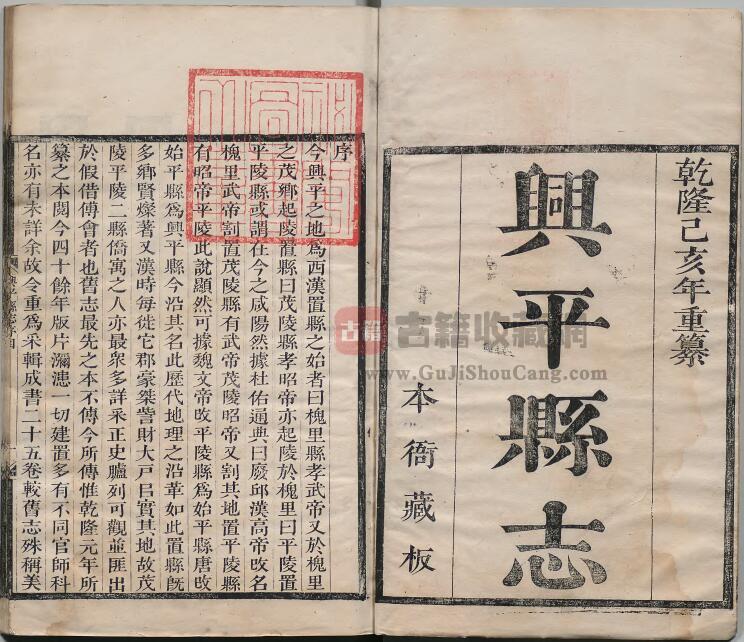 乾隆己亥年重纂
興平縣志
本衙藏板
序
今興平之地爲西漢置縣之始者曰槐里縣孝武帝又於槐里
之茂鄉起陵置縣曰茂陵縣孝昭帝亦起陵於槐里曰平陵置
平陵縣或謂在今之咸陽然據杜佑通典曰廢邱漢高帝攺名
槐里武帝割置茂陵縣有武帝茂陵昭帝又割其地置平陵縣
有昭帝平陵此說顯然可據魏文帝攺平陵縣爲始平縣唐攺
始平縣爲興平縣今沿其名此歴代地理之沿革如此置縣旣
多鄉賢燦著又漢時每徙它郡豪桀訾財大戸㠯實其地故茂
陵平陵二縣僑寓之人亦最衆多詳采正史臚列可觀並匪出
於假借傅會者也舊志最先之本不傳今所傳惟乾隆元年所
纂之本閱今四十餘年版片漏漶一切建置多有不同官師科
名亦有未詳余故令重爲釆輯成書二十五卷較舊志殊稱美
古籍
古籍收藏網
www.GuJiShouCang.com